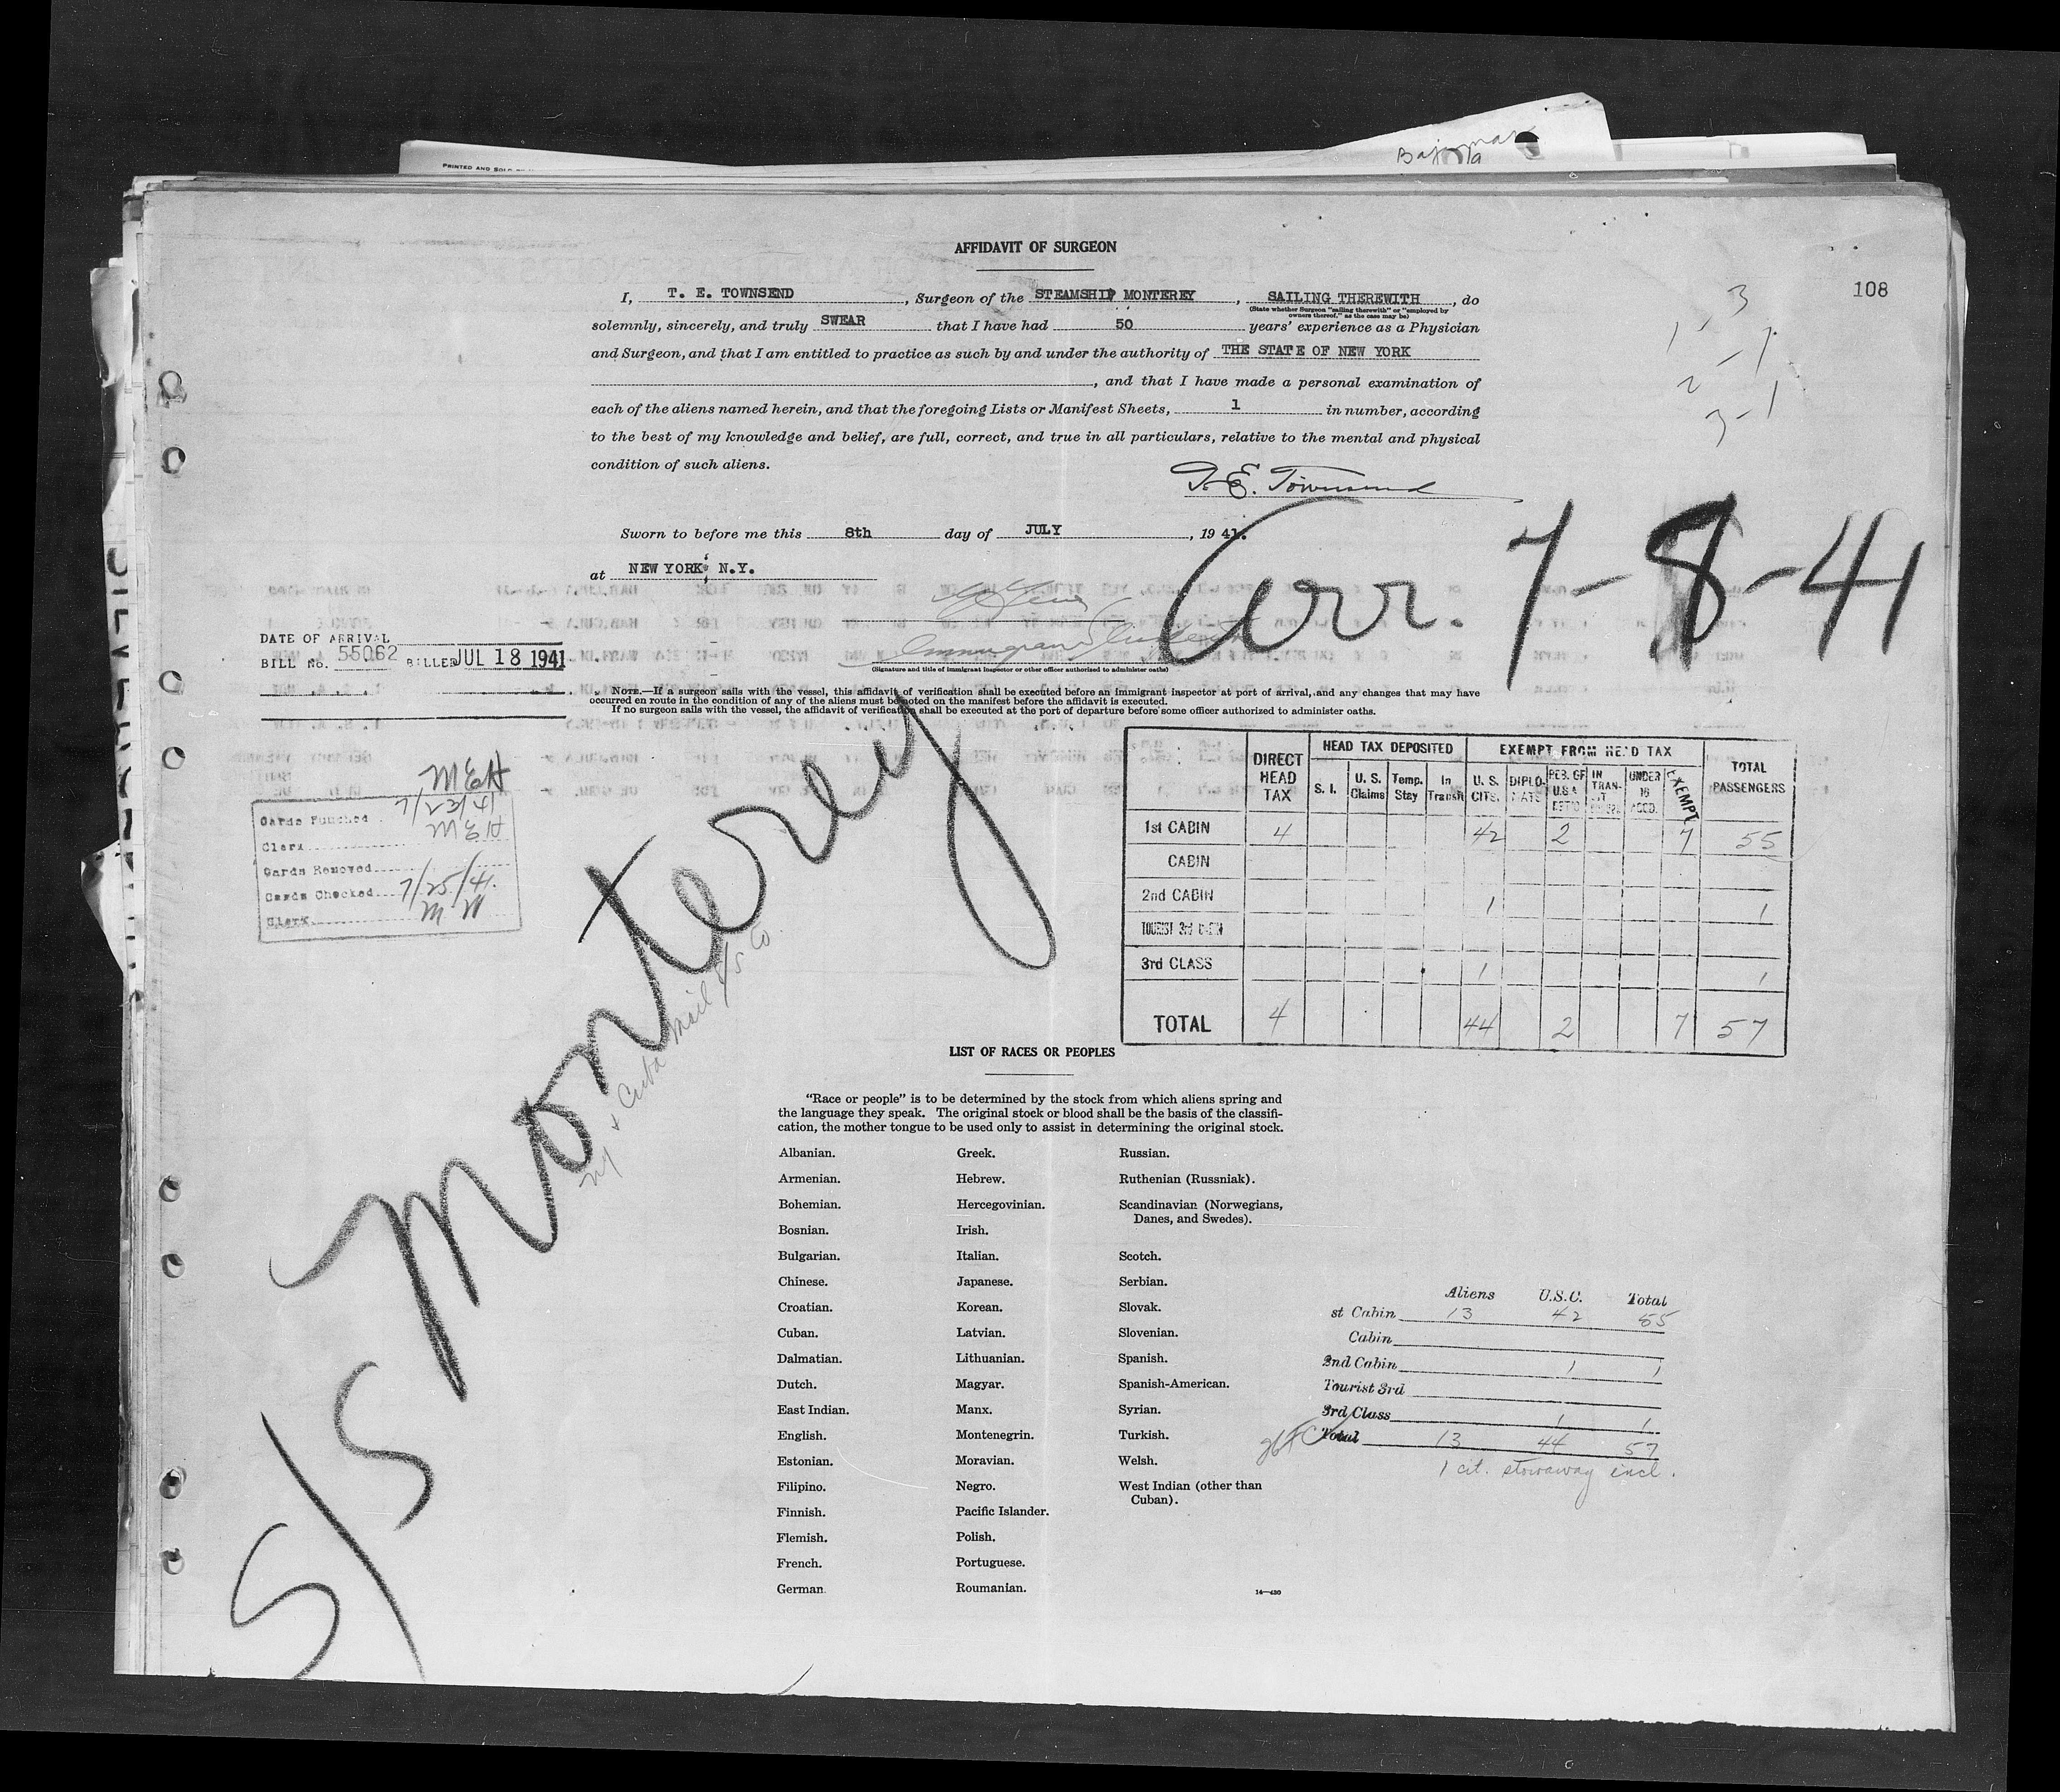 PRINTED AND SOLD
108
AFFIDAVIT OF SURGEON
I, T. E. TOWNSEND, Surgeon of the STEAMSHIP MONTEREY, SAILING THEREWITH, do
(State whether Surgeon "sailing therewith" or "employed by
owners thereof," as the case may be)
solemnly, sincerely, and truly SWEAR that I have had 50 years' experience as a Physician
and Surgeon, and that I am entitled to practice as such by and under the authority of THE STATE OF NEW YORK
, and that I have made a personal examination of
each of the aliens named herein, and that the foregoing Lists or Manifest Sheets, 1 in number, according
to the best of my knowledge and belief, are full, correct, and true in all particulars, relative to the mental and physical
condition of such aliens.
T. E. Townsend
Sworn to before me this 8th day of JULY, 1941.
at NEW YORK, N.Y.
Arr. 7-8-41
Immigrant Inspector
(Signature and title of immigrant inspector or other officer authorized to administer oaths)
DATE OF ARRIVAL
BILL No. 55062 BILLED JUL 18 1941
NOTE.—If a surgeon sails with the vessel, this affidavit of verification shall be executed before an immigrant inspector at port of arrival, and any changes that may have
occurred en route in the condition of any of the aliens must be noted on the manifest before the affidavit is executed.
If no surgeon sails with the vessel, the affidavit of verification shall be executed at the port of departure before some officer authorized to administer oaths.
MEH
Cards Punched 7/23/41
Clerk MEH
Cards Removed
Cards Checked 7/25/41.
Clerk M W
S/S Monterey
NY & Cuba Mail S/S Co
DIRECT HEAD TAX
HEAD TAX DEPOSITED
EXEMPT FROM HEAD TAX
TOTAL PASSENGERS
S. I. U. S. Claims Temp. Stay In Transit U. S. CITS. DIPLOMATS RES. OF U.S.A. RET'D IN TRANSIT UNDER 16 ACCD. EXEMPT
1st CABIN 4 42 2 7 55
CABIN
2nd CABIN 1 1
TOURIST 3rd CABIN
3rd CLASS 1 1
TOTAL 4 44 2 7 57
LIST OF RACES OR PEOPLES
"Race or people" is to be determined by the stock from which aliens spring and
the language they speak. The original stock or blood shall be the basis of the classifi-
cation, the mother tongue to be used only to assist in determining the original stock.
Albanian.
Armenian.
Bohemian.
Bosnian.
Bulgarian.
Chinese.
Croatian.
Cuban.
Dalmatian.
Dutch.
East Indian.
English.
Estonian.
Filipino.
Finnish.
Flemish.
French.
German
Greek.
Hebrew.
Hercegovinian.
Irish.
Italian.
Japanese.
Korean.
Latvian.
Lithuanian.
Magyar.
Manx.
Montenegrin.
Moravian.
Negro.
Pacific Islander.
Polish.
Portuguese.
Roumanian.
Russian.
Ruthenian (Russniak).
Scandinavian (Norwegians,
Danes, and Swedes).
Scotch.
Serbian.
Slovak.
Slovenian.
Spanish.
Spanish-American.
Syrian.
Turkish.
Welsh.
West Indian (other than
Cuban).
Aliens U.S.C. Total
st Cabin 13 42 55
Cabin
2nd Cabin 1 1
Tourist 3rd
3rd Class 1 1
Total 13 44 57
1 cit. stowaway incl.
14—430